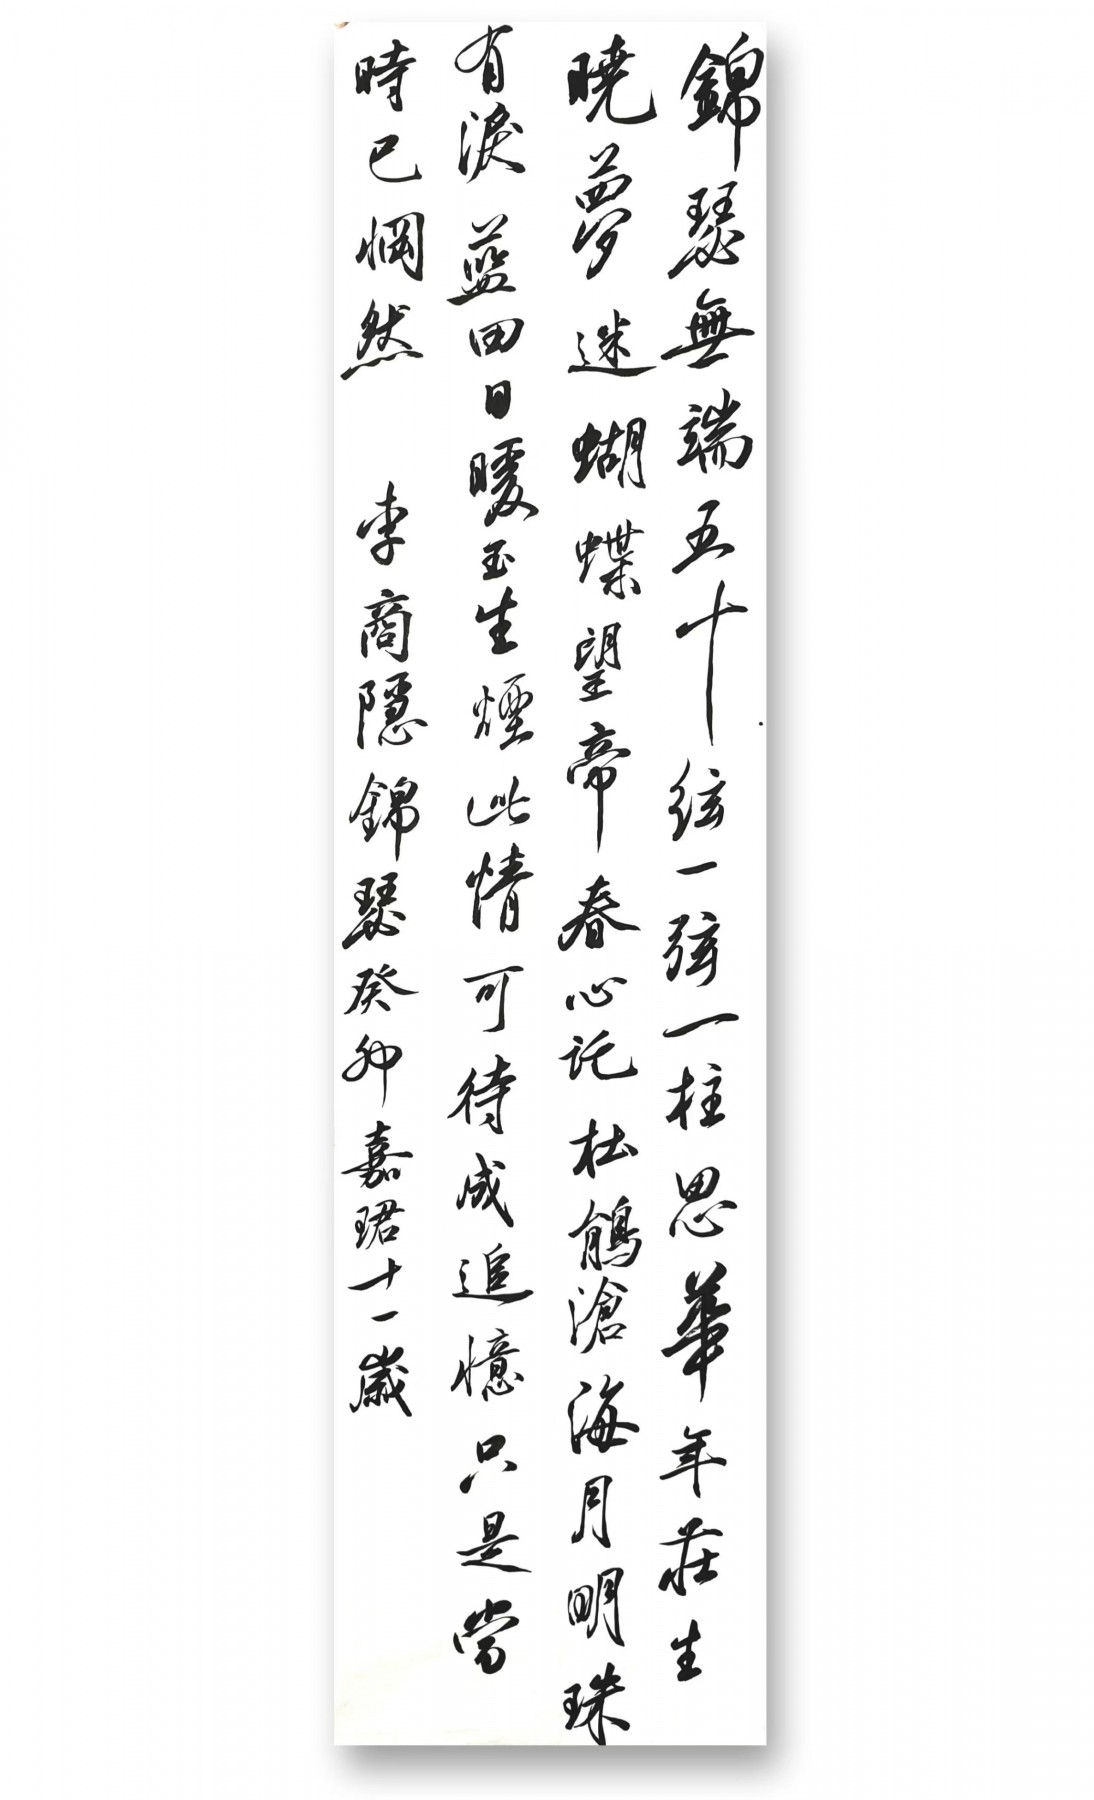 錦瑟無端五十絃一弦一柱思華年莊生
曉夢迷蝴蝶望帝春心託杜鵑滄海月明珠
有淚藍田日暖玉生煙此情可待成追憶只是當
時已惘然 李商隱錦瑟癸卯嘉珺十一歲